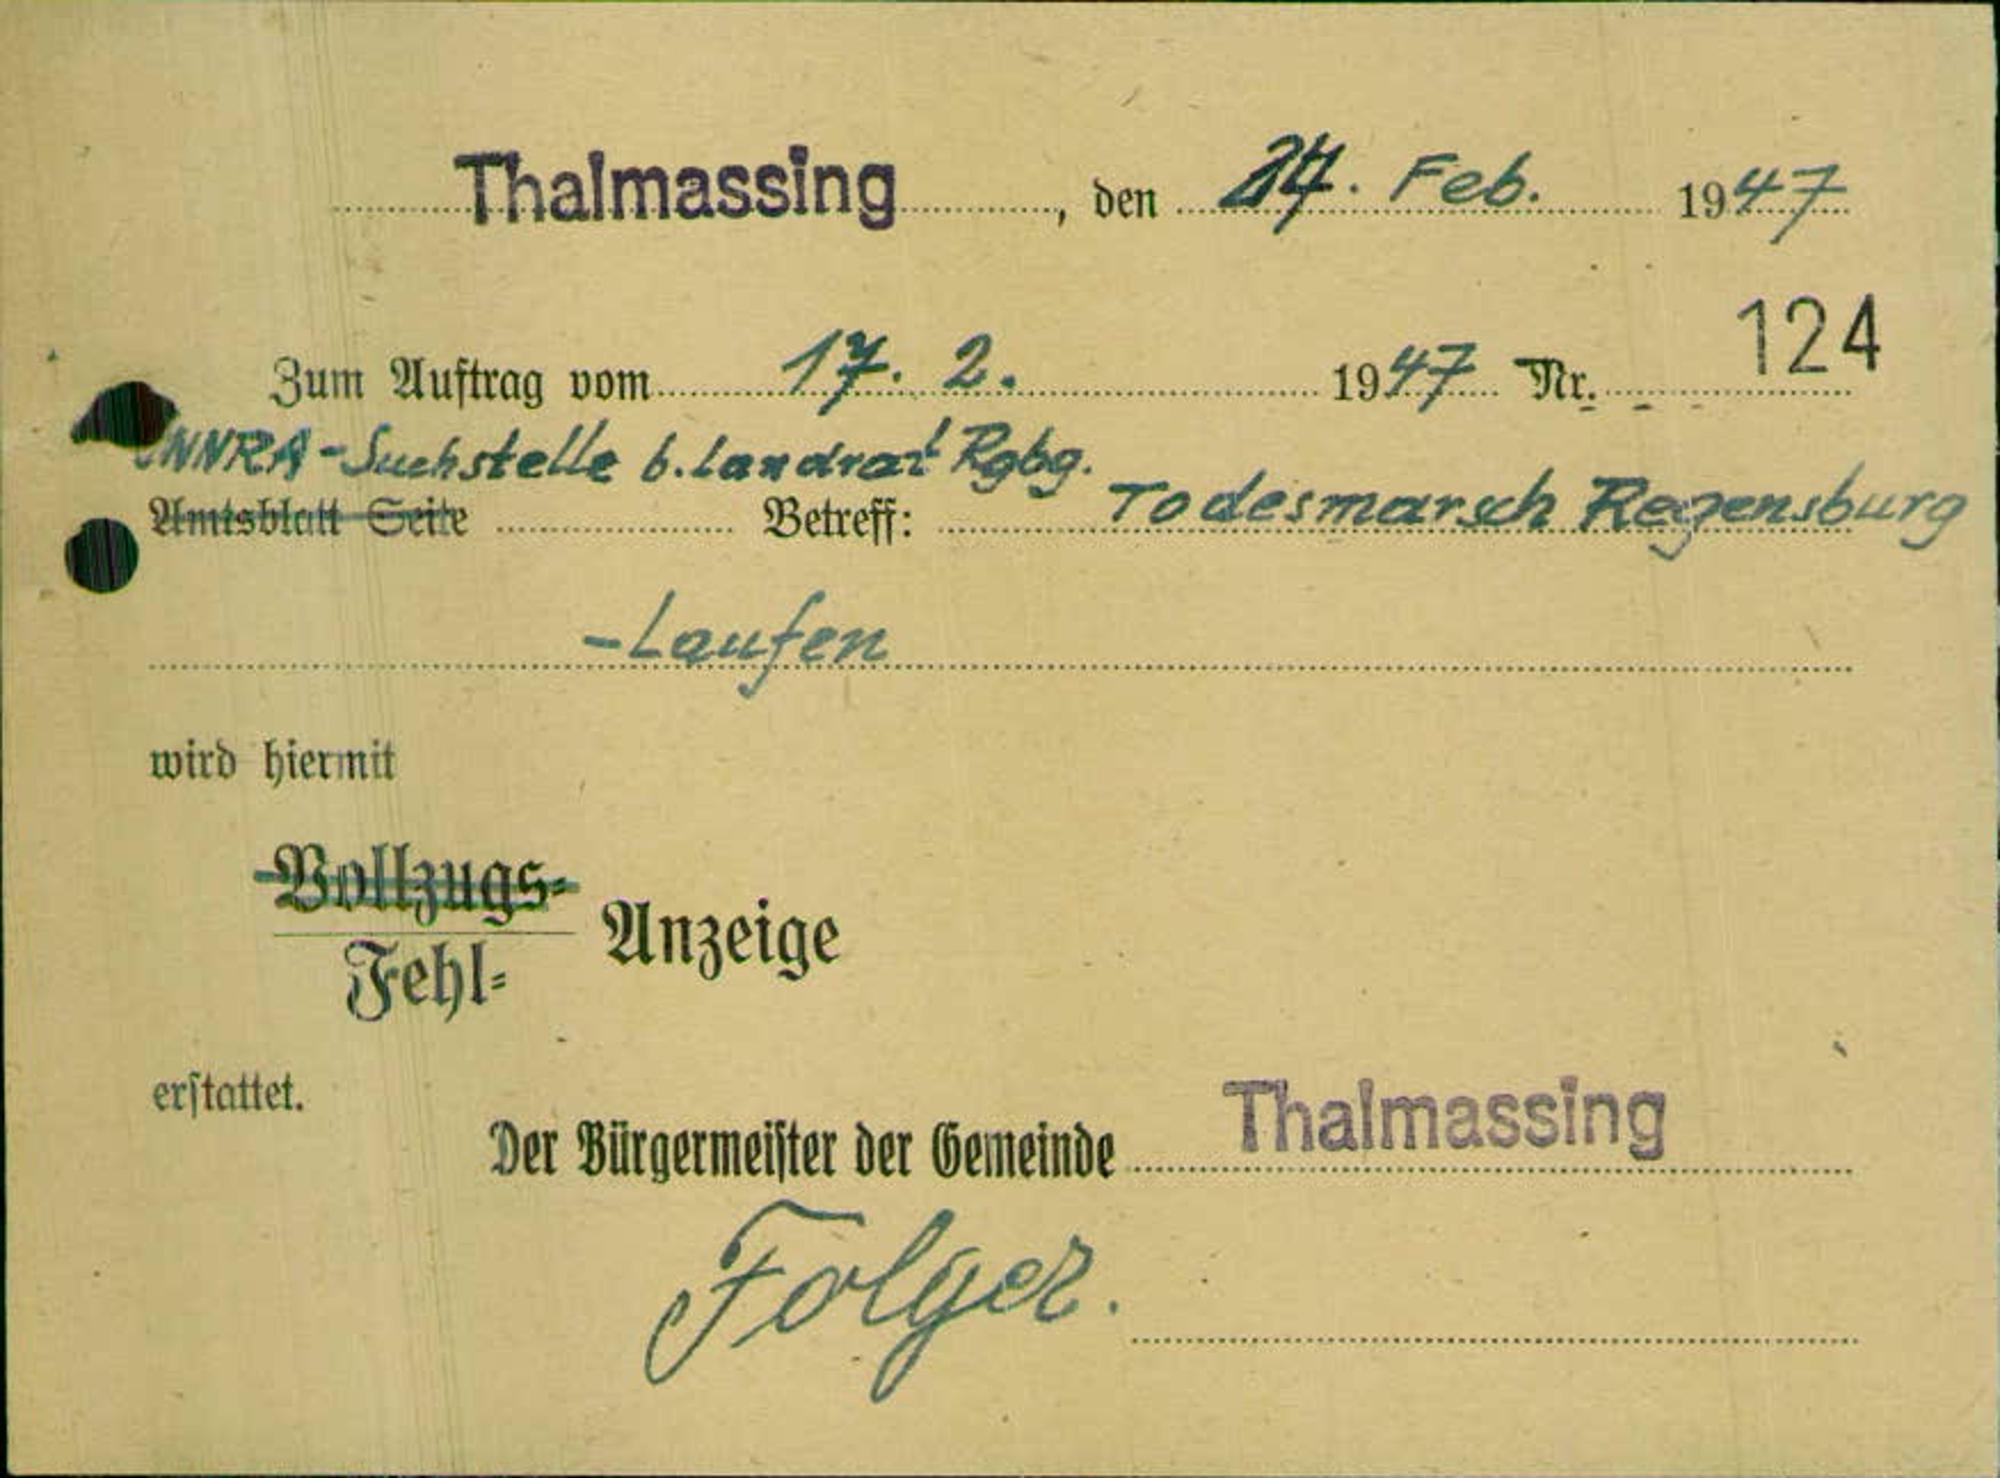 Thalmassing, den 24. Feb. 1947
124
Zum Auftrag vom 17. 2. 1947 Nr.
UNNRA-Suchstelle b. Landrat Rgbg.
Amtsblatt Seite Betreff: Todesmarsch Regensburg
-Laufen
wird hiermit
Vollzugs-
Fehl- Anzeige
erstattet.
Der Bürgermeister der Gemeinde Thalmassing
Folger.